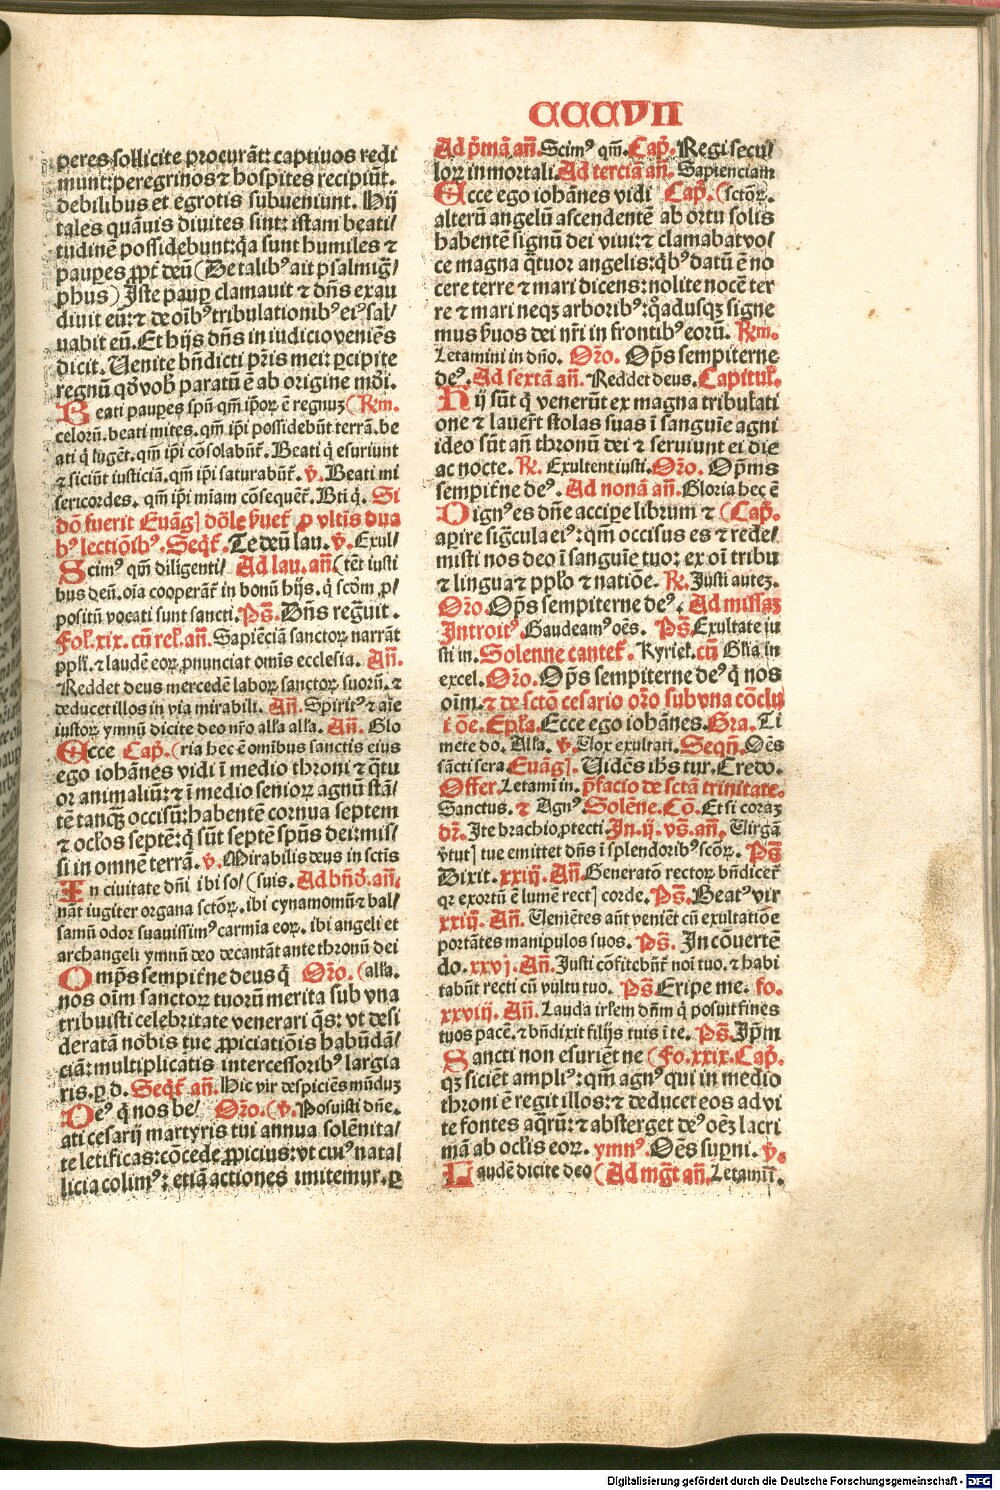 CCCVII
peres sollicite procurāt: captiuos redi
munt: peregrinos ⁊ hospites recipiūt.
debilibus et egrotis subueniunt. Hij
tales quāuis diuites sint: istam beati/
tudinē possidebunt: q̇a sunt humiles ⁊
paupes ꝓpt̄ deū (De talibꝰ ait psalmig̃/
phus) Iste paup clamauit ⁊ dn̄s exau
diuit eū: ⁊ de oībꝰ tribulationibꝰ eiꝰ sal/
uabit eū. Et hijs dn̄s in iudicio veniēs
dicit. Uenite bn̄dicti pr̄is mei: ꝑcipite
regnū qd̄ vob̄ paratū ē ab origine mōi.
Beati paupes spū qm̄ ip̄oꝝ ē regnuꝫ (Rm.
celorū. beati mites. qm̄ ip̄i possidebūt terrā. be
ati q̇ lugēt. qm̄ ip̄i cōsolabūt̄. Beati q̇ esuriunt
⁊ siciūt iusticiā. qm̄ ip̄i saturabūt̄. v̄. Beati mi
sericordes. qm̄ ip̄i miam cōsequēt̄. Bti q̇. Si
dō fuerit Euāg̃ dōle vuet̄ ꝓ vltis dua
bꝰ lectōibꝰ. Seqt̄. Te deū lau. v̄. Exul/
Scimꝰ qm̄ diligenti/ Ad lau. an̄ (tēt iusti
bus deū. oīa cooperāt̄ in bonū hijs. q̇ scōm ꝓ/
positū vocati sunt sancti. Ps̄. Dn̄s regūit.
Fol. xix. cū rel. an̄. Sapiēciā sanctoꝝ narrāt
ppl̄i. ⁊ laudē eoꝝ pnunciat omīs ecclesia. An̄.
Reddet deus mercedē laboꝝ sanctoꝝ suorū. ⁊
deducet illos in via mirabili. An̄. Spiritꝰ ⁊ aīe
iustoꝝ ymnū dicite deo nr̄o alla alla. An̄. Glo
Ecce Cap̄. (ria hec ē omībus sanctis eius
ego iohānes vidi ī medio throni ⁊ q̄tu
or animaliū: ⁊ ī medio senioꝝ agnū stā/
tē tanq̄ꝫ occisū: habentē cornua septem
⁊ oclos septē: q̇ sūt septē spūs dei: mis/
si in omnē terrā. v̄. Mirabilis deus in sctis
In ciuitate dn̄i ibi so/ (suis. Ad bn̄d. an̄.
nāt iugiter organa sctōꝝ. ibi cynamomū ⁊ bal/
samū odor suauissimꝰ carmīa eoꝝ. ibi angeli et
archangeli ymnū deo decantāt ante thronū dei
Omp̄s sempit̄ne deus q̇ Oro. (alla.
nos oīm sanctoꝝ tuorū merita sub vna
tribuisti celebritate venerari q̄s: vt desi
deratā nobis tue ꝓpiciatiōis habūdā/
ciā: multiplicatis intercessoribꝰ largia
ris. ꝑ d. Seqt̄ an̄. Hic vir despiciēs mūduꝫ
Deꝰ q̇ nos be/ Oro. (v̄. Posuisti dn̄e.
ati cesarij martyris tui annua solēnita/
te letificas: cōcede ꝓpicius: vt cuiꝰ nata/
licia colimꝰ: etiā actiones imitemur. ꝑ
Ad p̄mā an̄. Scimꝰ qm̄. Cap̄. Regi secu/
loꝝ inmortali. Ad terciā an̄. Sapienciam
Ecce ego iohānes vidi Cap̄. (sctōꝝ.
alterū angelū ascendentē ab ortu solis
habentē signū dei viui: ⁊ clamabat vo/
ce magna q̄tuor angelis: q̇bꝰ datū ē no
cere terre ⁊ mari dicens: nolite nocē ter
re ⁊ mari neqꝫ arboribꝰ: q̇adusqꝫ signe
mus s̄uos dei nr̄i in frontibꝰ eorū. Rm.
Letamini in dn̄o. Oro. Op̄s sempiterne
deꝰ. Ad sextā an̄. Reddet deus. Capitul̄.
Hij sūt q̇ venerūt ex magna tribulati
one ⁊ lauer̄t stolas suas ī sanguīe agni
ideo sūt an̄ thronū dei ⁊ seruiunt ei die
ac nocte. R̄. Exultent iusti. Oro. Op̄ms
sempit̄ne deꝰ. Ad nonā an̄. Gloria hec ē
Dignꝰ es dn̄e accipe librum ⁊ (Cap̄.
apire sig̃cula eiꝰ: qm̄ occisus es ⁊ rede/
misti nos deo ī sanguīe tuo: ex oī tribu
⁊ lingua ⁊ pplo ⁊ natiōe. R̄. Justi auteꝫ.
Oro. Op̄s sempiterne deꝰ. Ad missaꝫ
Introitꝰ. Gaudeamꝰ oēs. Ps̄. Exultate iu
sti in. Solenne cantet̄. Kyriel̄. cū Gl̄ia in
excel. Oro. Op̄s sempiterne deꝰ q̇ nos
oīm. ⁊ de sctō cesario oro sub vna cōclu
ī ōe. Epl̄a. Ecce ego iohānes. Gra. Ti
mete do. Alla. v̄. Uox exultati. Seqn̄. Oēs
sācti sera. Euāg̃. Uidēs ihs tur. Credo.
Offer. Letamī in. p̄facio de sctā trinitate.
Sanctus. ⁊ Agnꝰ. Solēne. Cō. Et si coraꝫ
dr̄. Ite brachio, ptecti. In. ij. vs̄. an̄, Uirgā
v̄tut̄ tue emittet dn̄s ī splendoribꝰ scōꝝ. Ps̄
Dixit. xxiij. An̄. Generatō rectoꝝ bn̄dicet̄
qr exortū ē lumē rect̄ corde. Ps̄. Beatꝰ vir
xxiij. An̄. Uenietes aūt veniēt cū exultatiōe
portātes manipulos suos. Ps̄. In cōuertē
do. xxvj. An̄. Justi cōfitebūt̄ noī tuo. ⁊ habi
tabūt recti cū vultu tuo. Ps̄ Eripe me. fo.
xxviij. An̄. Lauda irl̄em dn̄m q̇ posuit fines
tuos pacē. ⁊ bn̄dixit filijs tuis ī te. Ps̄. Ip̄m
Sancti non esuriēt ne (Fo. xxix. Cap̄.
qꝫ siciēt ampliꝰ: qm̄ agnꝰ qui in medio
throni ē regit illos: ⁊ deducet eos ad vi
te fontes aq̄rū: ⁊ absterget deꝰ oēꝫ lacri
mā ab oclis eoꝝ. ymnꝰ. Oēs supni. v̄.
Laudē dicite deo (Ad mg̃t an̄. Letamī.
Digitalisierung gefördert durch die Deutsche Forschungsgemeinschaft - DFG